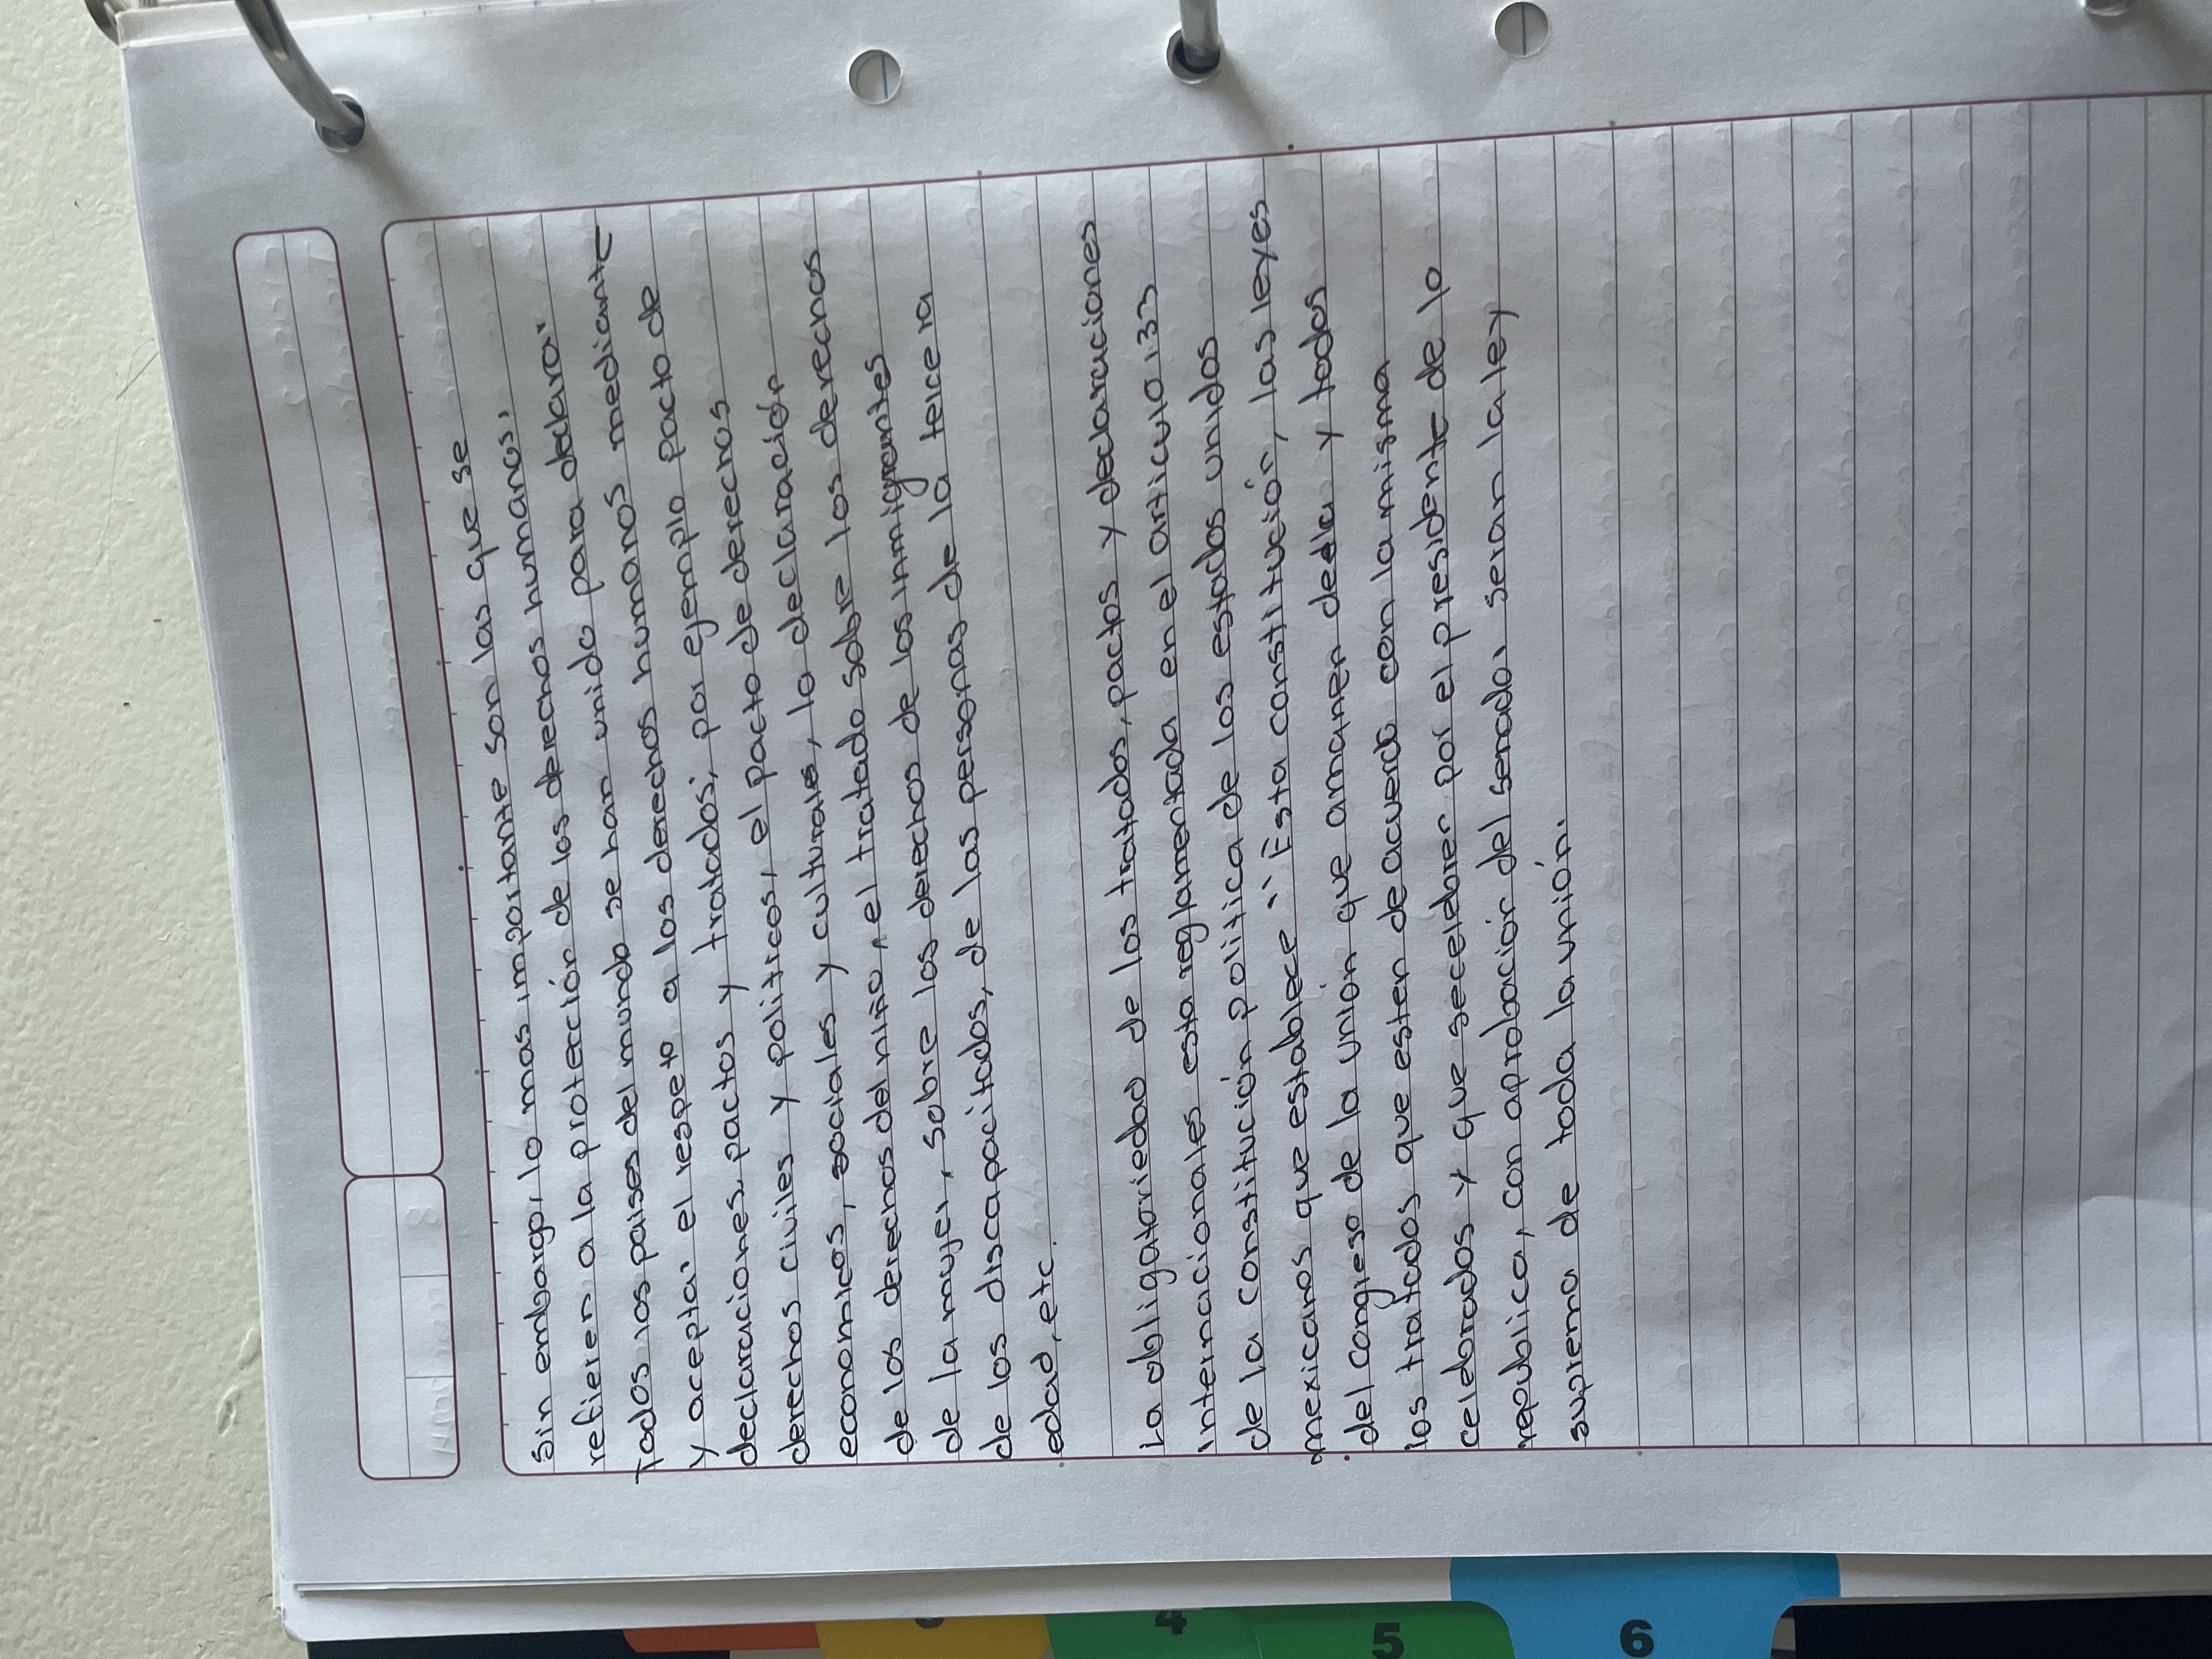 Sin embargo, lo mas importante son las que se
refieren a la protección de los derechos humanos,
Todos los paises del mundo se han unido para declarar
y aceptar el respeto a los derechos humanos mediante
declaraciones, pactos y tratados; por ejemplo pacto de
derechos civiles y politicos, el pacto de derechos
economicos, sociales y culturales, la declaración
de los derechos del niño, el tratado sobre los derechos
de la mujer, sobre los derechos de los inmigrantes
de los discapacitados, de las personas de la tercera
edad, etc.
La obligatoriedad de los tratados, pactos y declaraciones
internacionales esta reglamentada en el articulo 133
de la constitución politica de los estados unidos
mexicanos que establece "Esta constitución, las leyes
del congreso de la unión que amanen de ella y todos
los tratados que esten de acuerdo con la misma
celebrados y que se celebren por el presidente de la
republica, con aprobación del senado, seran la ley
suprema de toda la unión.
6
5
4